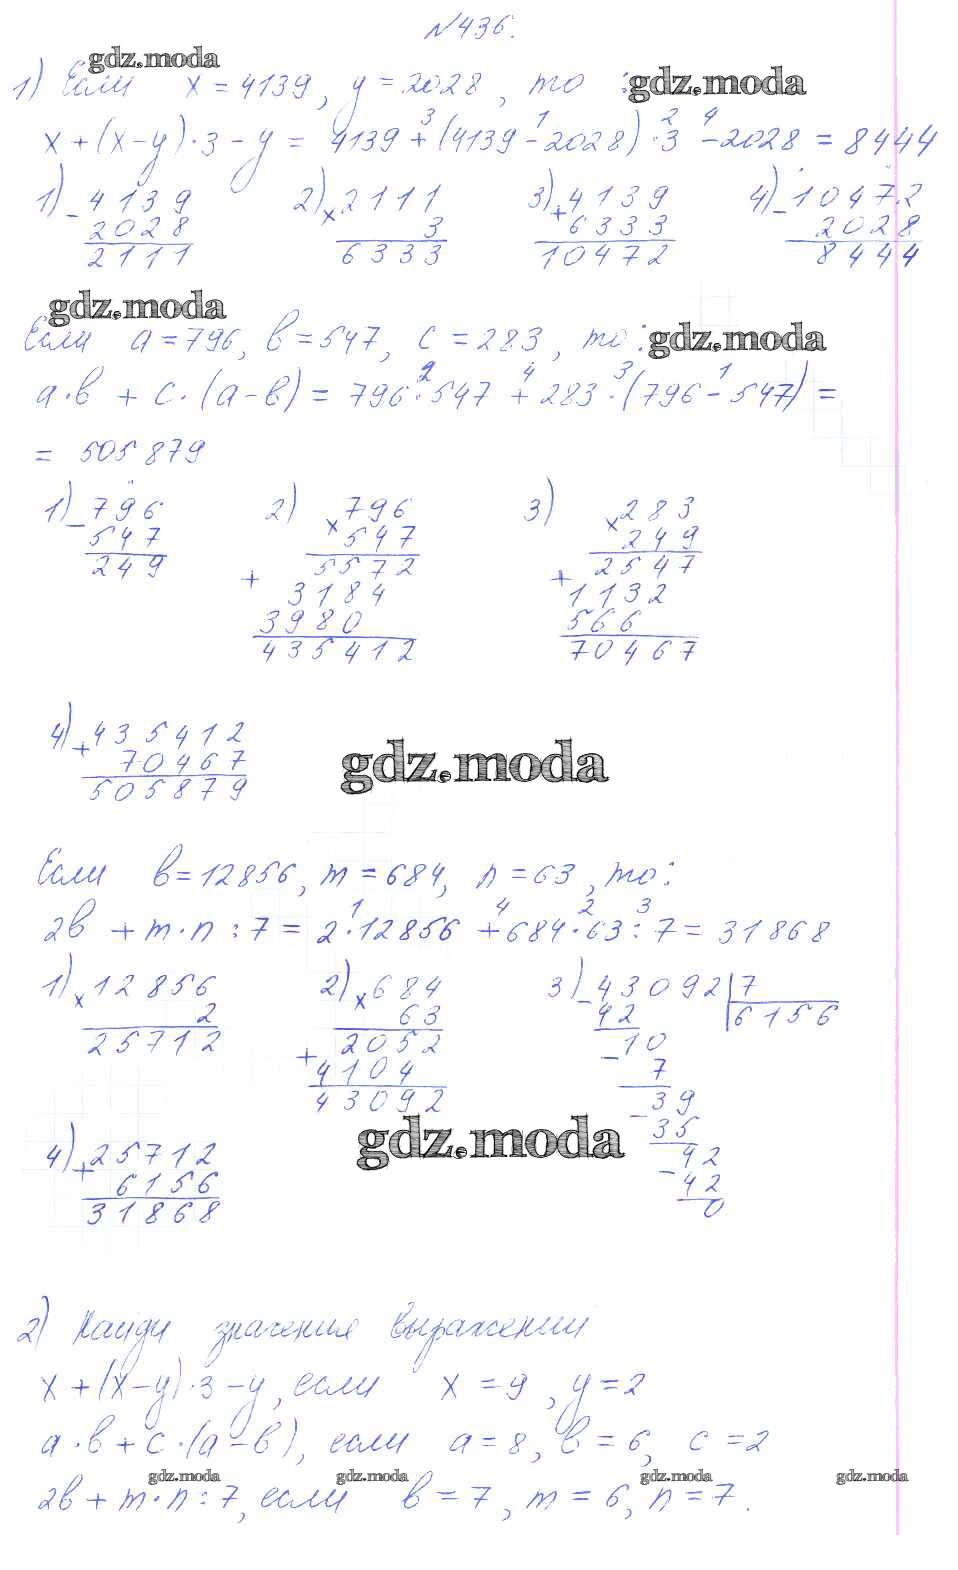 №436.
gdz.moda
1) Если x = 4139, y = 2028, то :
gdz.moda
x + (x - y) · 3 - y = 4139 + (4139 - 2028) · 3 - 2028 = 8444
3 1 2 4
1) - 4139 2) × 2111 3) + 4139 4) - 10472
2028 3 6333 2028
2111 6333 10472 8444
gdz.moda
Если a = 796, b = 547, c = 283, то :
gdz.moda
a · b + c · (a - b) = 796 · 547 + 283 · (796 - 547) =
2 4 3 1
= 505879
1) - 796 2) × 796 3) × 283
547 547 249
249 5572 2547
+ 3184 + 1132
3980 566
435412 70467
4) + 435412
70467
505879
gdz.moda
Если b = 12856, m = 684, n = 63, то :
2b + m · n : 7 = 2 · 12856 + 684 · 63 : 7 = 31868
1 4 2 3
1) × 12856 2) × 684 3) - 43092 | 7
2 63 42 6156
25712 2052 - 10
+ 4104 7
43092 - 39
gdz.moda
35
4) + 25712 - 42
6156 42
31868 0
2) Найди значения выражений
x + (x - y) · 3 - y, если x = 9, y = 2
a · b + c · (a - b), если a = 8, b = 6, c = 2
gdz.moda gdz.moda gdz.moda gdz.moda
2b + m · n : 7, если b = 7, m = 6, n = 7.